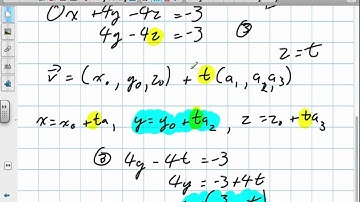 0x + 4y - 4z = -3
4y - 4z = -3
z = t
v⃗ = (x₀, y₀, z₀) + t(a₁, a₂, a₃)
x = x₀ + ta₁, y = y₀ + ta₂, z = z₀ + ta₃
② 4y - 4t = -3
4y = -3 + 4t